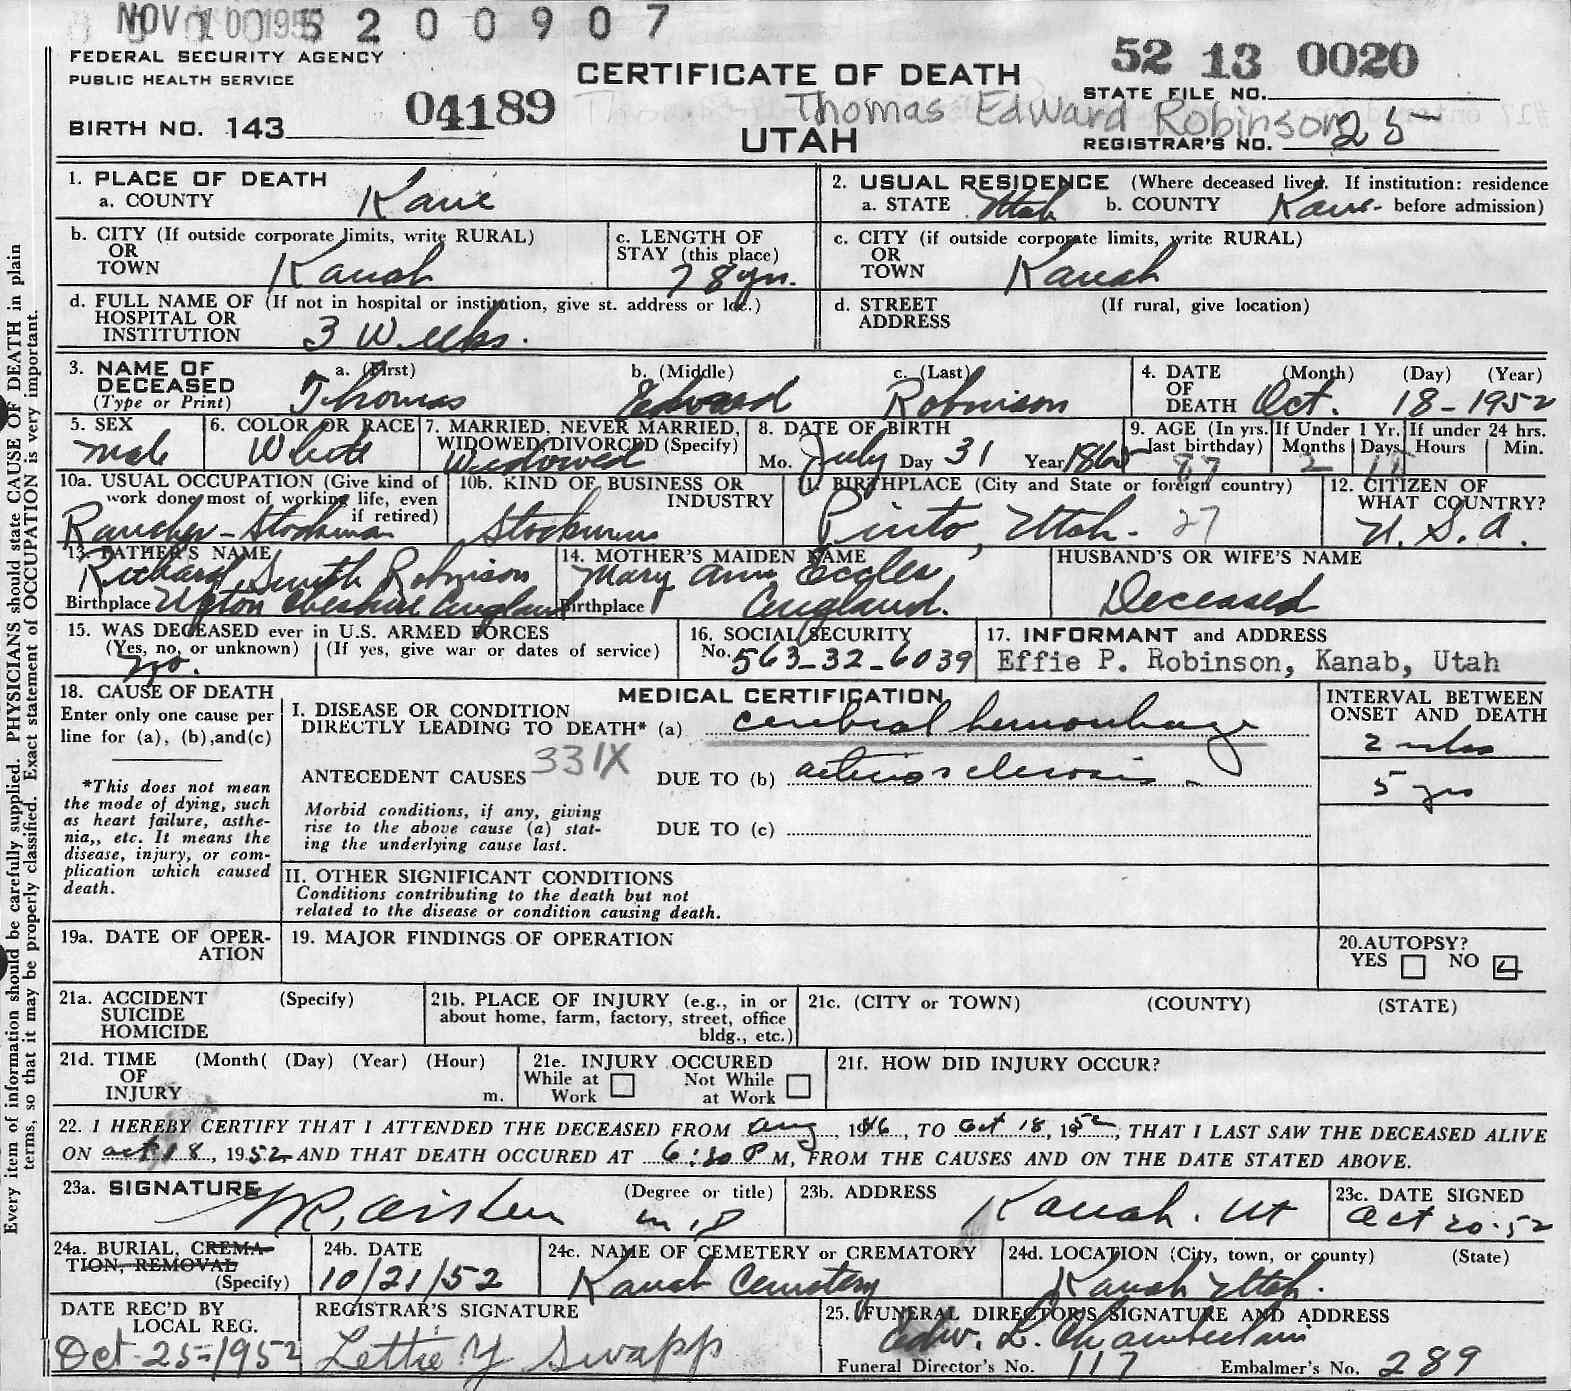 NOV 10 1952 5 2 0 0 9 0 7
FEDERAL SECURITY AGENCY
PUBLIC HEALTH SERVICE
CERTIFICATE OF DEATH
52 13 0020
STATE FILE NO.
04189
Thomas Edward Robinson
BIRTH NO. 143
UTAH
REGISTRAR'S NO. 25
1. PLACE OF DEATH
a. COUNTY Kane
2. USUAL RESIDENCE (Where deceased lived. If institution: residence
a. STATE Utah b. COUNTY Kane before admission)
b. CITY (If outside corporate limits, write RURAL)
OR
TOWN Kanab
c. LENGTH OF
STAY (this place)
78 yrs.
c. CITY (if outside corporate limits, write RURAL)
OR
TOWN Kanab
d. FULL NAME OF (If not in hospital or institution, give st. address or loc.)
HOSPITAL OR
INSTITUTION 3 Weeks.
d. STREET (If rural, give location)
ADDRESS
3. NAME OF a. (First) b. (Middle) c. (Last)
DECEASED
(Type or Print) Thomas Edward Robinson
4. DATE (Month) (Day) (Year)
OF
DEATH Oct. 18-1952
5. SEX
Male
6. COLOR OR RACE
White
7. MARRIED, NEVER MARRIED,
WIDOWED, DIVORCED (Specify)
Widowed
8. DATE OF BIRTH
Mo. July Day 31 Year
9. AGE (In yrs.
last birthday)
87
If Under 1 Yr.
Months Days
2
If under 24 hrs.
Hours Min.
10a. USUAL OCCUPATION (Give kind of
work done most of working life, even
if retired)
Rancher-Stockman
10b. KIND OF BUSINESS OR
INDUSTRY
11. BIRTHPLACE (City and State or foreign country)
Pinto, Utah. 27
12. CITIZEN OF
WHAT COUNTRY?
U.S.A.
13. FATHER'S NAME
Richard Smith Robinson
Birthplace Upton England
14. MOTHER'S MAIDEN NAME
Mary Ann Eccles
Birthplace England.
HUSBAND'S OR WIFE'S NAME
Deceased
15. WAS DECEASED ever in U.S. ARMED FORCES
(Yes, no, or unknown) (If yes, give war or dates of service)
No.
16. SOCIAL SECURITY
No. 563-32-6039
17. INFORMANT and ADDRESS
Effie P. Robinson, Kanab, Utah
18. CAUSE OF DEATH
Enter only one cause per
line for (a), (b), and (c)
*This does not mean
the mode of dying, such
as heart failure, asthe-
nia,, etc. It means the
disease, injury, or com-
plication which caused
death.
MEDICAL CERTIFICATION
I. DISEASE OR CONDITION
DIRECTLY LEADING TO DEATH* (a) cerebral hemorrhage
331X
ANTECEDENT CAUSES DUE TO (b) arteriosclerosis
Morbid conditions, if any, giving
rise to the above cause (a) stat-
ing the underlying cause last.
DUE TO (c)
INTERVAL BETWEEN
ONSET AND DEATH
2 wks
5 yrs
II. OTHER SIGNIFICANT CONDITIONS
Conditions contributing to the death but not
related to the disease or condition causing death.
19a. DATE OF OPER-
ATION
19. MAJOR FINDINGS OF OPERATION
20. AUTOPSY?
YES NO
21a. ACCIDENT (Specify)
SUICIDE
HOMICIDE
21b. PLACE OF INJURY (e.g., in or
about home, farm, factory, street, office
bldg., etc.)
21c. (CITY or TOWN) (COUNTY) (STATE)
21d. TIME (Month( (Day) (Year) (Hour)
OF
INJURY m.
21e. INJURY OCCURED
While at Not While
Work at Work
21f. HOW DID INJURY OCCUR?
22. I HEREBY CERTIFY THAT I ATTENDED THE DECEASED FROM Aug, 1946, TO Oct 18, 1952, THAT I LAST SAW THE DECEASED ALIVE
ON Oct 18, 1952 AND THAT DEATH OCCURED AT 6:30 P M, FROM THE CAUSES AND ON THE DATE STATED ABOVE.
23a. SIGNATURE (Degree or title)
M.D
23b. ADDRESS
Kanab. Ut
23c. DATE SIGNED
Oct 20-52
24a. BURIAL, CREMA-
TION, REMOVAL
(Specify)
24b. DATE
10/21/52
24c. NAME OF CEMETERY or CREMATORY
Kanab Cemetery
24d. LOCATION (City, town, or county) (State)
Kanab Utah.
DATE REC'D BY
LOCAL REG.
Oct-25-1952
REGISTRAR'S SIGNATURE
Lettie Y Swapp
25. FUNERAL DIRECTOR'S SIGNATURE AND ADDRESS
Edw. L. Chamberlain
Funeral Director's No. 117 Embalmer's No. 289
Every item of information should be carefully supplied. PHYSICIANS should state CAUSE OF DEATH in plain
terms, so that it may be properly classified. Exact statement of OCCUPATION is very important.